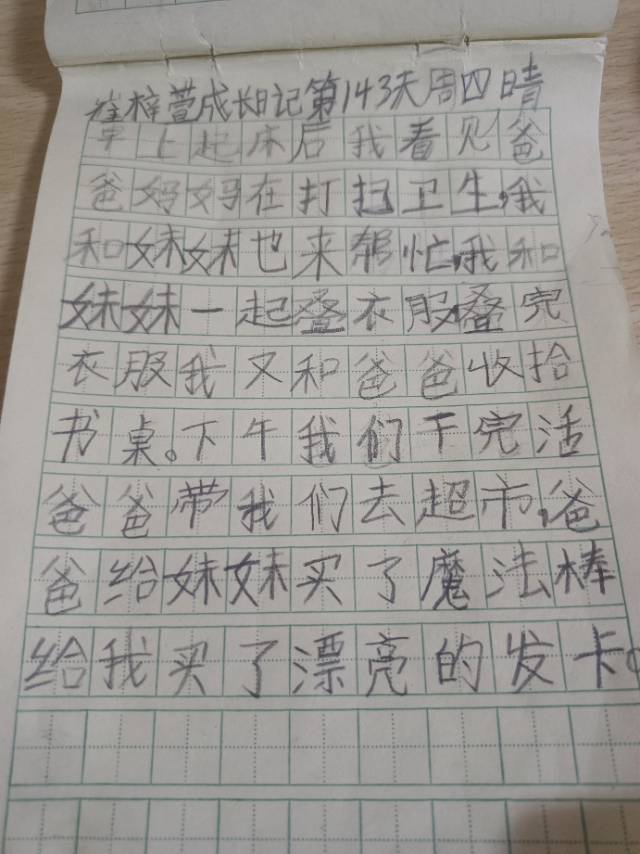 崔梓萱成长日记第143天周四晴
早上起床后我看见爸
爸妈妈在打扫卫生,我
和妹妹也来帮忙,我和
妹妹一起叠衣服,叠完
衣服我又和爸爸收拾
书桌。下午我们干完活
爸爸带我们去超市,爸
爸给妹妹买了魔法棒
给我买了漂亮的发卡。